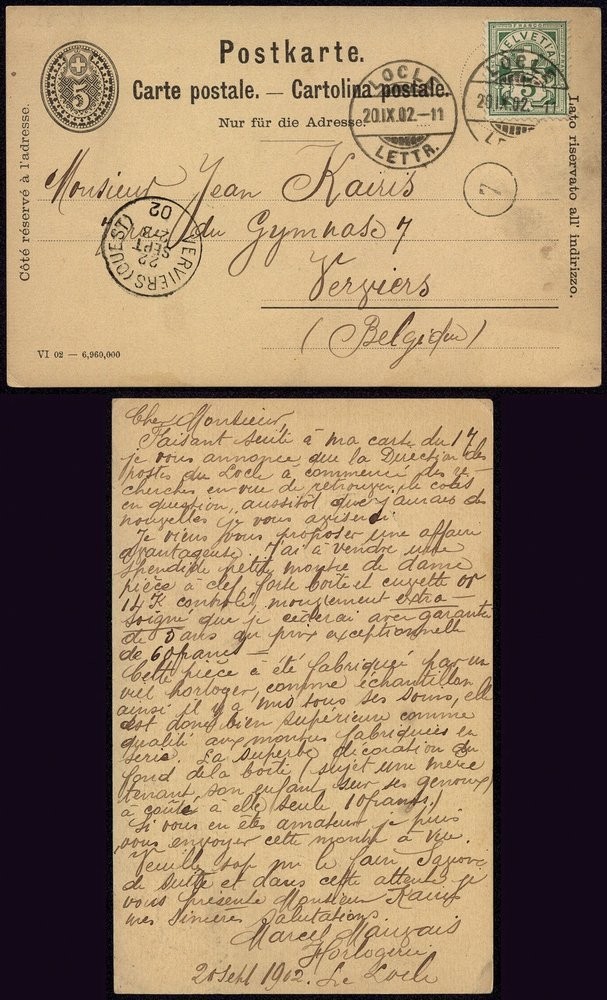 Postkarte.
Carte postale. — Cartolina postale.
Nur für die Adresse.
5
HELVETIA
5
LOCLE
20.IX.02.-11
LETTR.
LOCLE
20.IX.02.
Côté réservé à l'adresse.
Lato riservato all' indirizzo.
7
Monsieur Jean Kairis
du Gymnase 7
Verviers
(Belgique)
VERVIERS (OUEST)
22
SEPT
02
VI 02 — 6,960,000
Cher Monsieur,
Faisant suite à ma carte du 17
je vous annonce que la Direction des
postes du Locle a commencé des re-
cherches en vue de retrouver le colis
en question, aussitôt que j'aurais des
nouvelles je vous aviserai.
Je viens vous proposer une affaire
avantageuse. J'ai à vendre une
splendide petite montre de dame
pièce à clef, forte boîte et cuvette or
14 K contrôlé, mouvement extra-
soigné que je céderai avec garantie
de 5 ans au prix exceptionnelle
de 60 francs—
Cette pièce a été fabriquée par un
vieil horloger, comme échantillon
ainsi il y a mis tous ses soins, elle
est donc bien supérieure comme
qualité aux montres fabriquées en
serie. La superbe décoration du
fond de la boîte (sujet une mère
tenant son enfant sur ses genoux)
a coûté à elle seule 10 francs.)
Si vous en êtes amateur je puis
vous envoyer cette montre à vue.
Veuillez me le faire savoir
de suite et dans cette attente je
vous présente Monsieur Kairis
mes sincères salutations.
Marcel Mauvais
Horlogerie
20 sept 1902. Le Locle